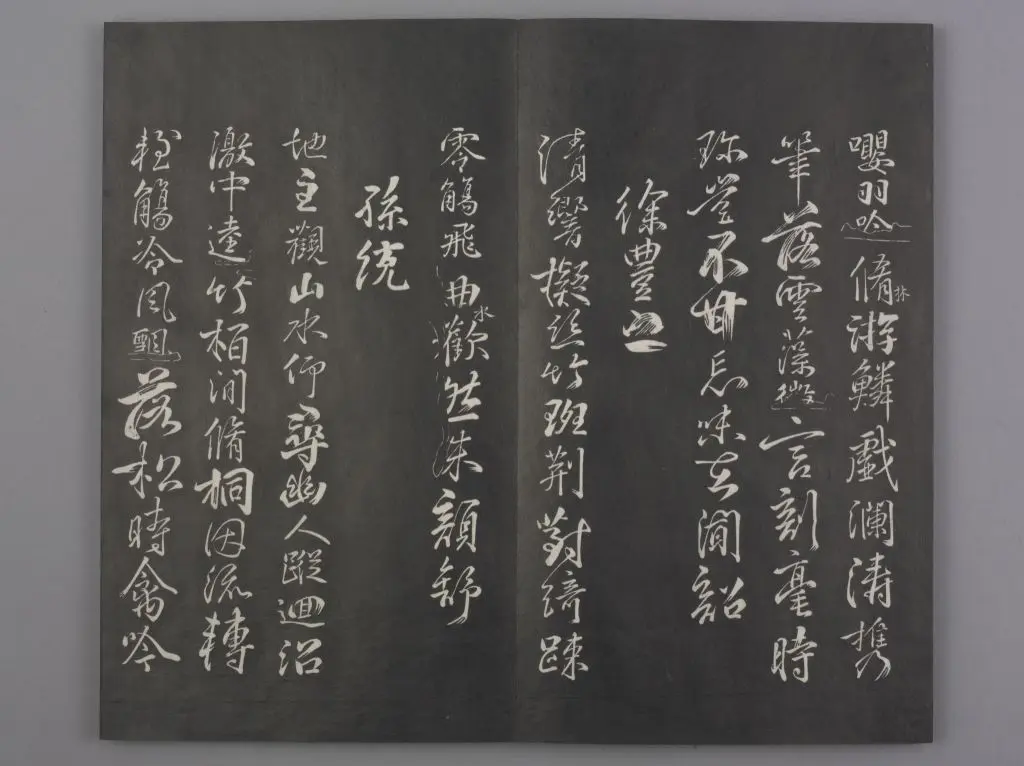 嚶羽吟脩林游鱗戲瀾濤攜
筆落雲藻微言刻毫時
珎豈不甘忘味在聞韶
徐豐之
清響擬絲竹班荊對綺踈
零觴飛曲水歡然朱顏舒
孫統
地主觀山水仰尋幽人蹤迴沼
激中逵竹柏間脩桐因流轉
輕觴冷風飄落松時禽吟